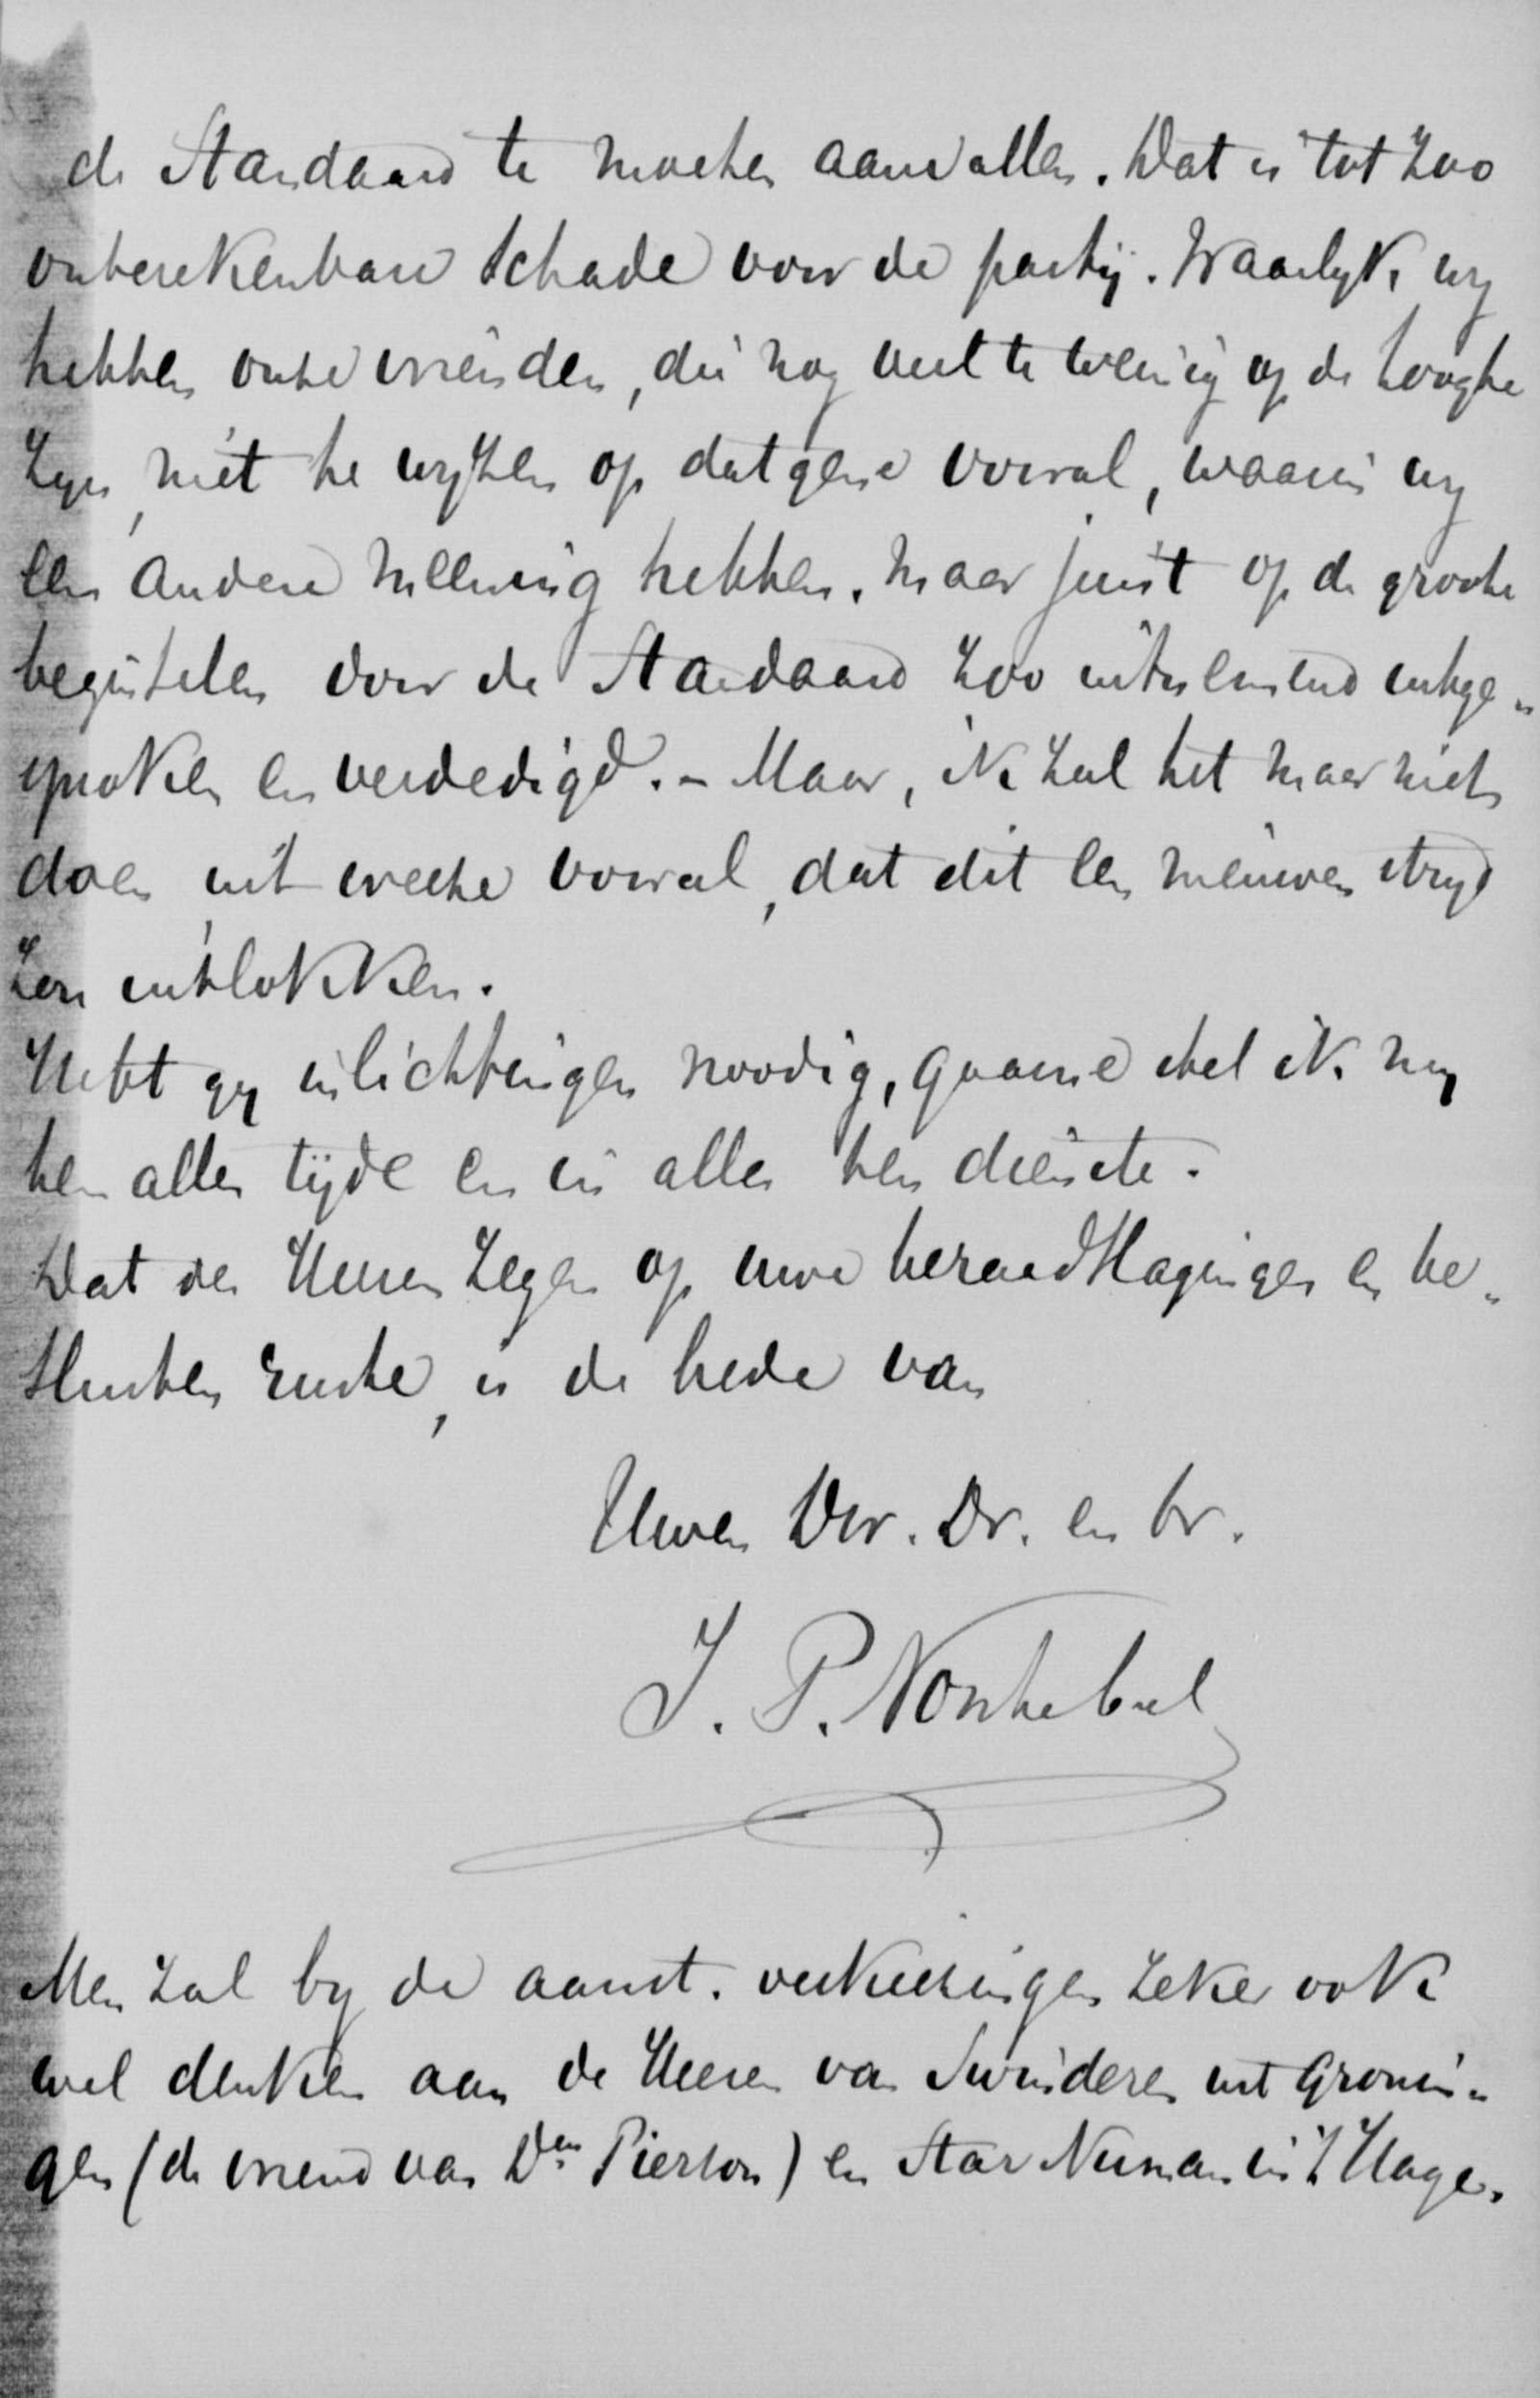 de Standaard te moeten aanvallen. Dat is tot zoo
onberekenbare schade voor de partij. Waarlyk wy
hebben onze vrienden, die nog veel te weinig op de hoogte
zyn, niet te wyzen op datgene vooral, waarin wy
een andere meening hebben. maar juist op de groote
beginselen door de Standaard zoo uitnemend uitge„
sproken en verdedigd. – Maar, ik zal het maar niet
doen, uit vreeze vooral, dat dit een nieuwen stryd
zou uitlokken.
Hebt gy inlichtingen noodig, gaarne stel ik my
ten allen tijde en in alles ten dienste.
Dat des Heeren Zegen op uwe beraadslagingen en be„
sluiten ruste, is de bede van
Uwen Dw. Dr. en br.
J. P. Nonhebel
Men zal by de aanst. verkiezingen zeker ook
wel denken aan de Heeren van Swinderen uit Gronin„
gen (de vriend van Ds. Pierson) en Star Numan in 's Hage.